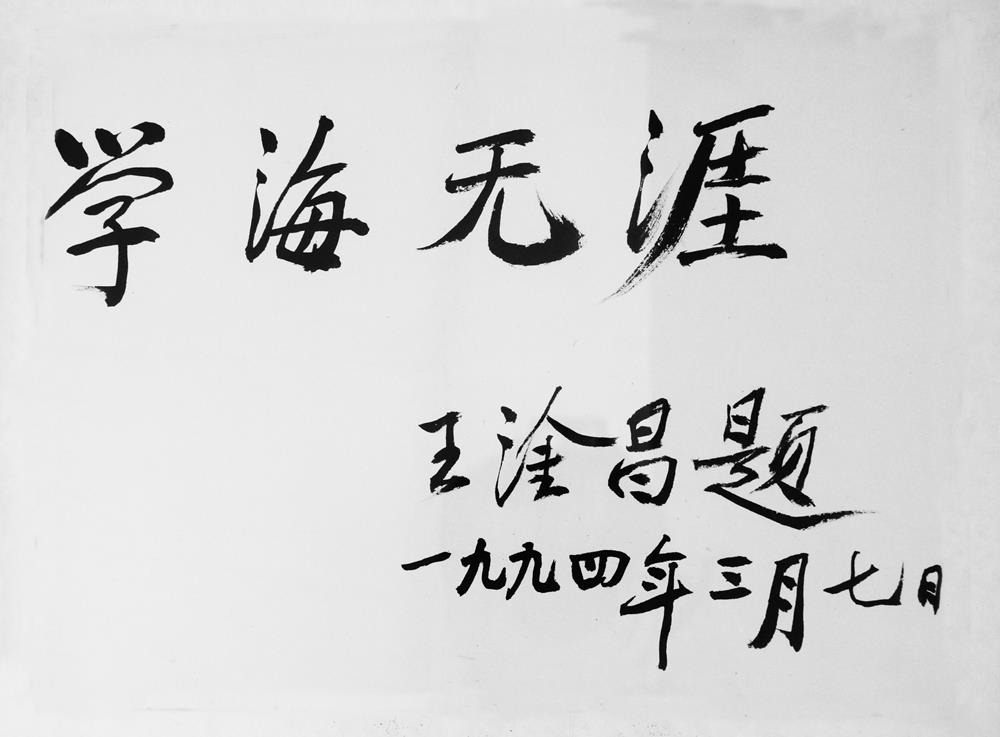 学海无涯
王淦昌题
一九九四年三月七日